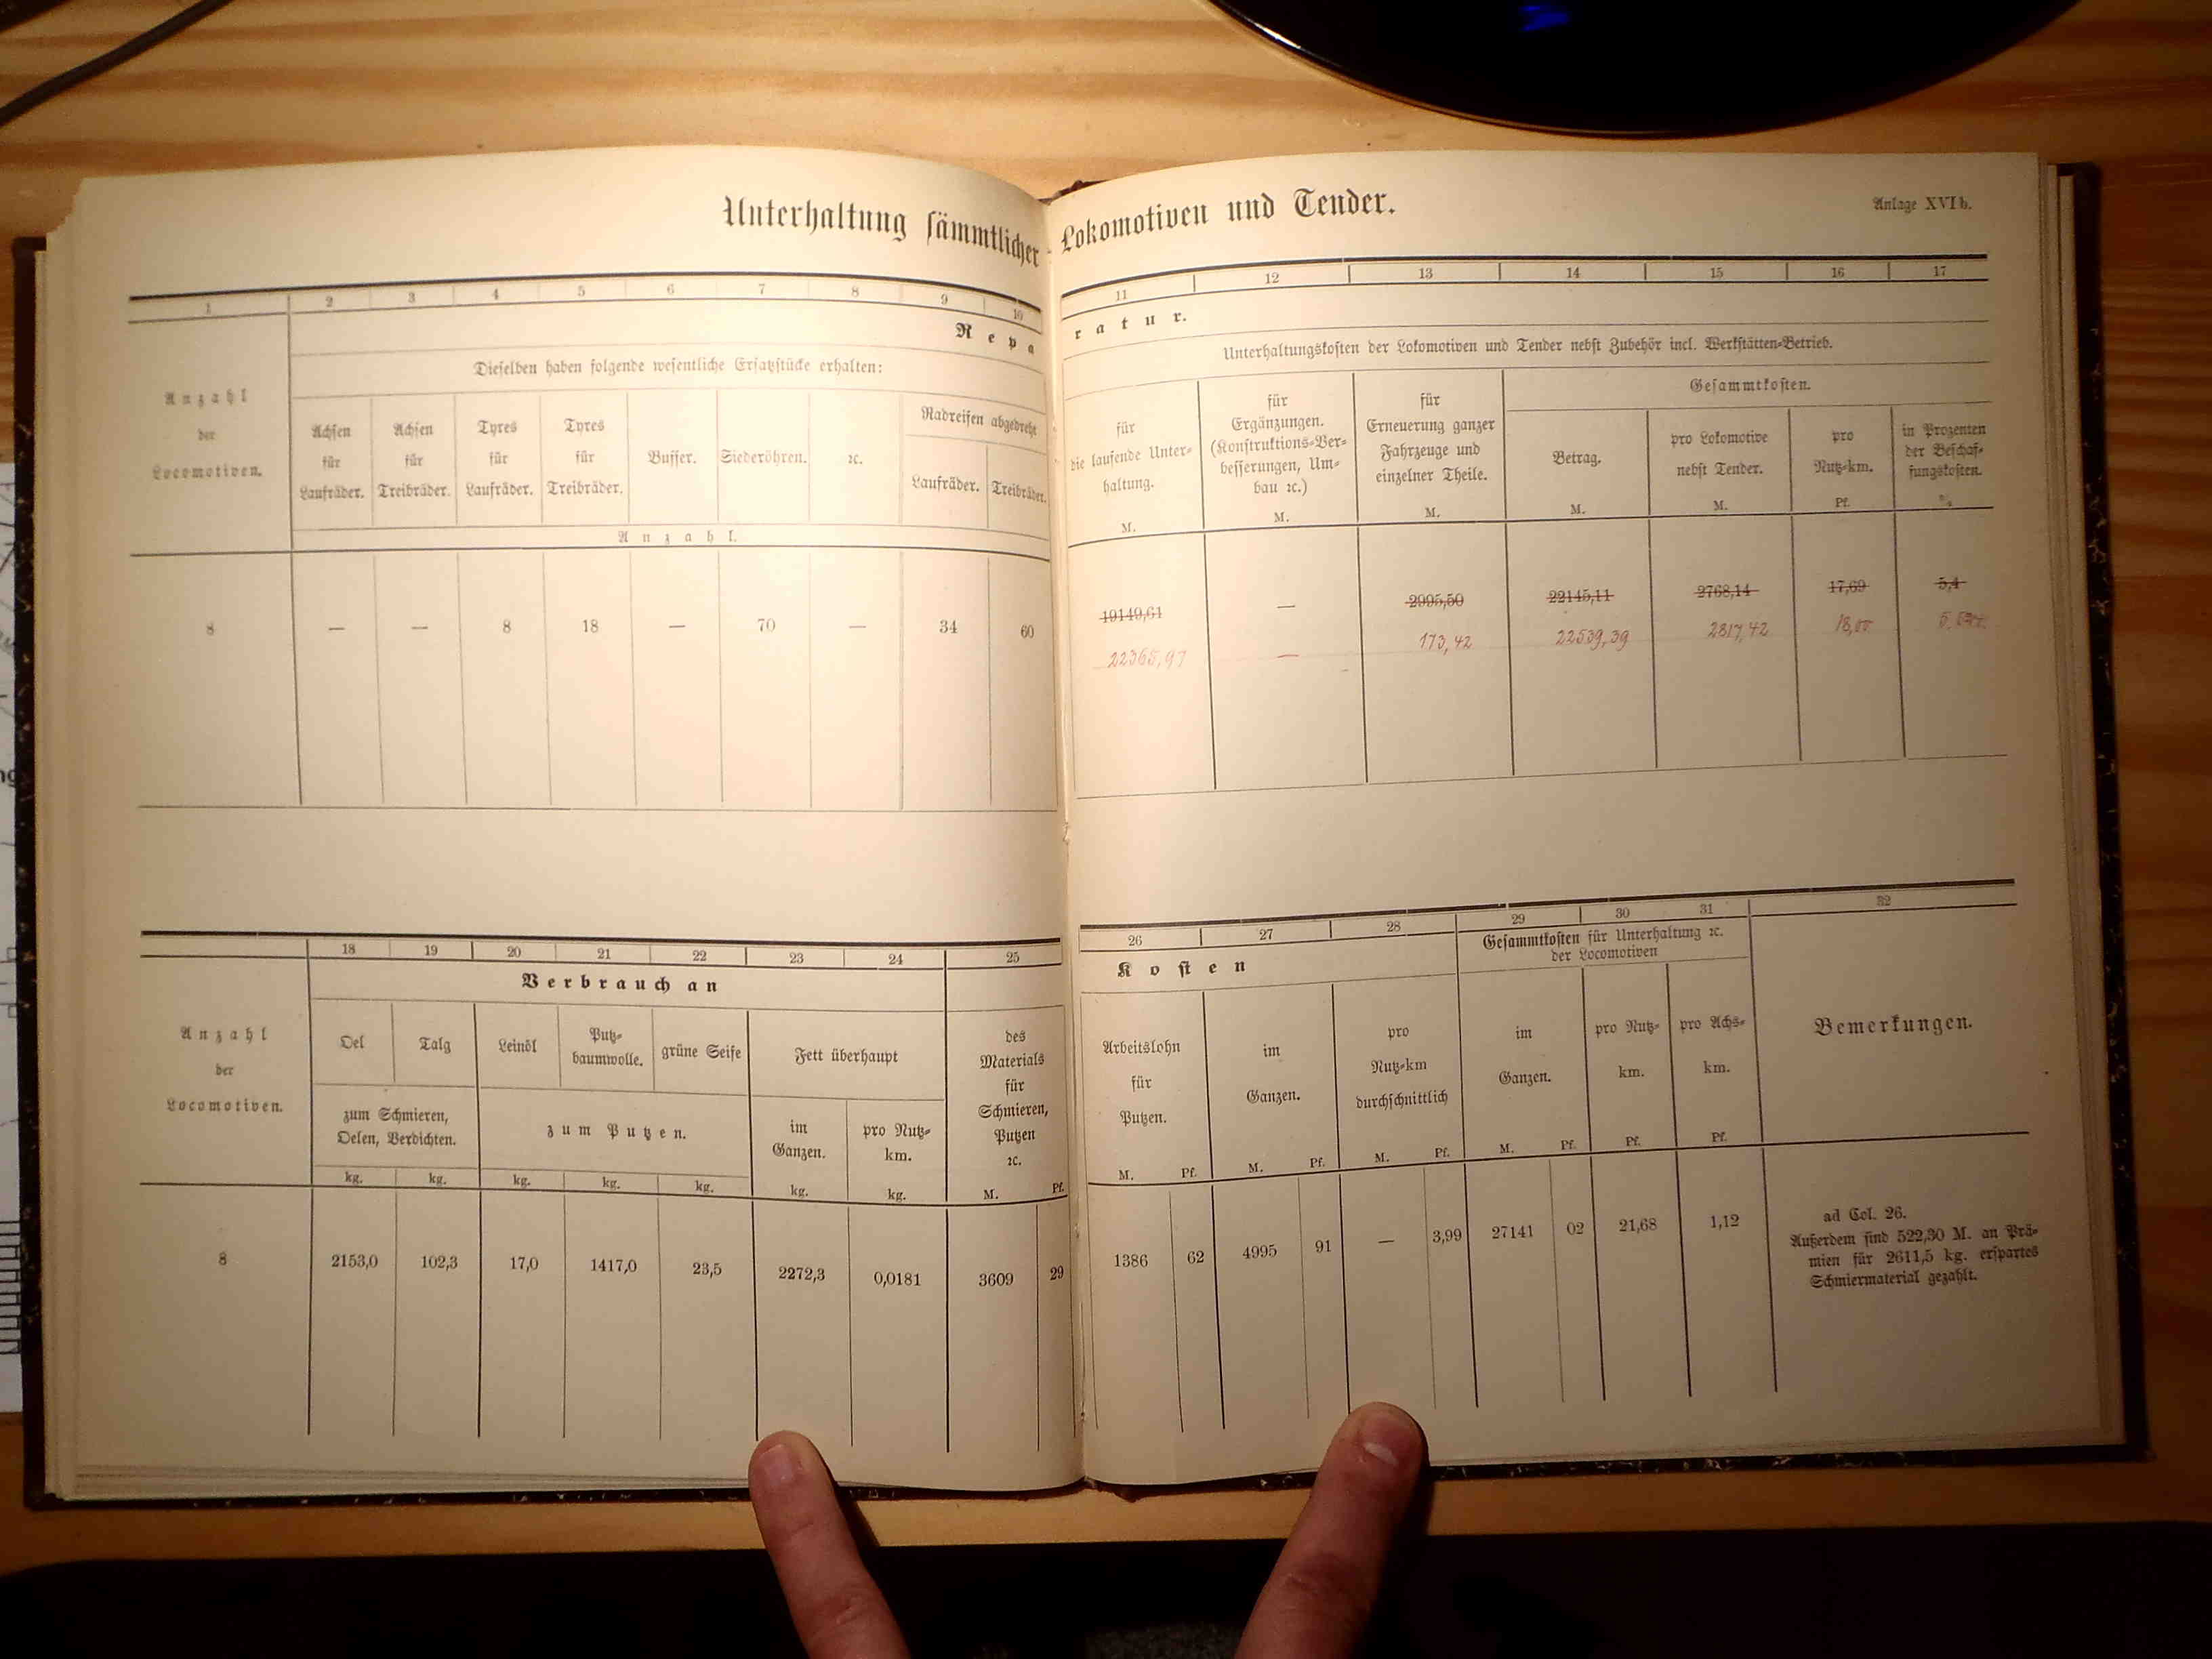 Unterhaltung sämmtlicher Lokomotiven und Tender.
Anlage XVI b.
1 2 3 4 5 6 7 8 9 10 11 12 13 14 15 16 17
Reparatur.
Dieselben haben folgende wesentliche Ersatzstücke erhalten:
Unterhaltungskosten der Lokomotiven und Tender nebst Zubehör incl. Werkstätten-Betrieb.
Anzahl
der
Locomotiven.
Achsen
für
Laufräder.
Achsen
für
Treibräder.
Tyres
für
Laufräder.
Tyres
für
Treibräder.
Buffer.
Siederöhren.
ꝛc.
Radreifen abgedreht
Laufräder.
Treibräder.
Anzahl.
für
die laufende Unter-
haltung.
M.
für
Ergänzungen.
(Konstruktions-Ver-
besserungen, Um-
bau ꝛc.)
M.
für
Erneuerung ganzer
Fahrzeuge und
einzelner Theile.
M.
Gesammtkosten.
Betrag.
M.
pro Lokomotive
nebst Tender.
M.
pro
Nutz-km.
Pf.
in Prozenten
der Beschaf-
fungskosten.
%
8 — — 8 18 — 70 — 34 60 19149,61 — 2995,50 22145,11 2768,14 17,69 5,4
22365,97 — 173,42 22539,39 2817,42 18,00
18 19 20 21 22 23 24 25 26 27 28 29 30 31 32
Verbrauch an
Kosten
Gesammtkosten für Unterhaltung ꝛc.
der Locomotiven
Anzahl
der
Locomotiven.
Oel
Talg
zum Schmieren,
Oelen, Verdichten.
kg. kg.
Leinöl
Putz-
baumwolle.
grüne Seife
zum Putzen.
kg. kg. kg.
Fett überhaupt
im
Ganzen.
kg.
pro Nutz-
km.
kg.
des
Materials
für
Schmieren,
Putzen
ꝛc.
M. Pf.
Arbeitslohn
für
Putzen.
M. Pf.
im
Ganzen.
M. Pf.
pro
Nutz-km
durchschnittlich
M. Pf.
im
Ganzen.
M. Pf.
pro Nutz-
km.
Pf.
pro Achs-
km.
Pf.
Bemerkungen.
8 2153,0 102,3 17,0 1417,0 23,5 2272,3 0,0181 3609 29 1386 62 4995 91 — 3,99 27141 02 21,68 1,12
ad Col. 26.
Außerdem sind 522,30 M. an Prä-
mien für 2611,5 kg. erspartes
Schmiermaterial gezahlt.